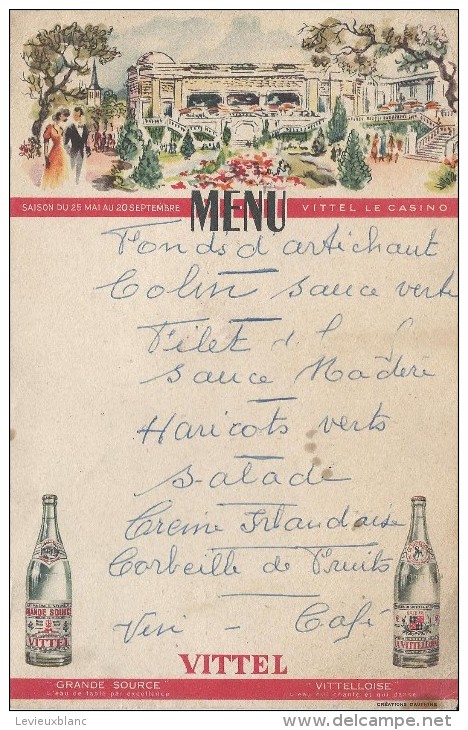 SAISON DU 25 MAI AU 20 SEPTEMBRE
MENU
VITTEL LE CASINO
Fonds d'artichaut
Colin sauce verte
Filet
sauce Madère
Haricots verts
Salade
Creme Irlandaise
Corbeille de Fruits
Vin - Café
GRANDE SOURCE
VITTEL
VITTELLOISE
VITTEL
GRANDE SOURCE
L'eau de table par excellence
"VITTELLOISE"
L'eau qui chante et qui danse
CRÉATIONS DAUPHINS
Levieuxblanc
www.delcampe.net